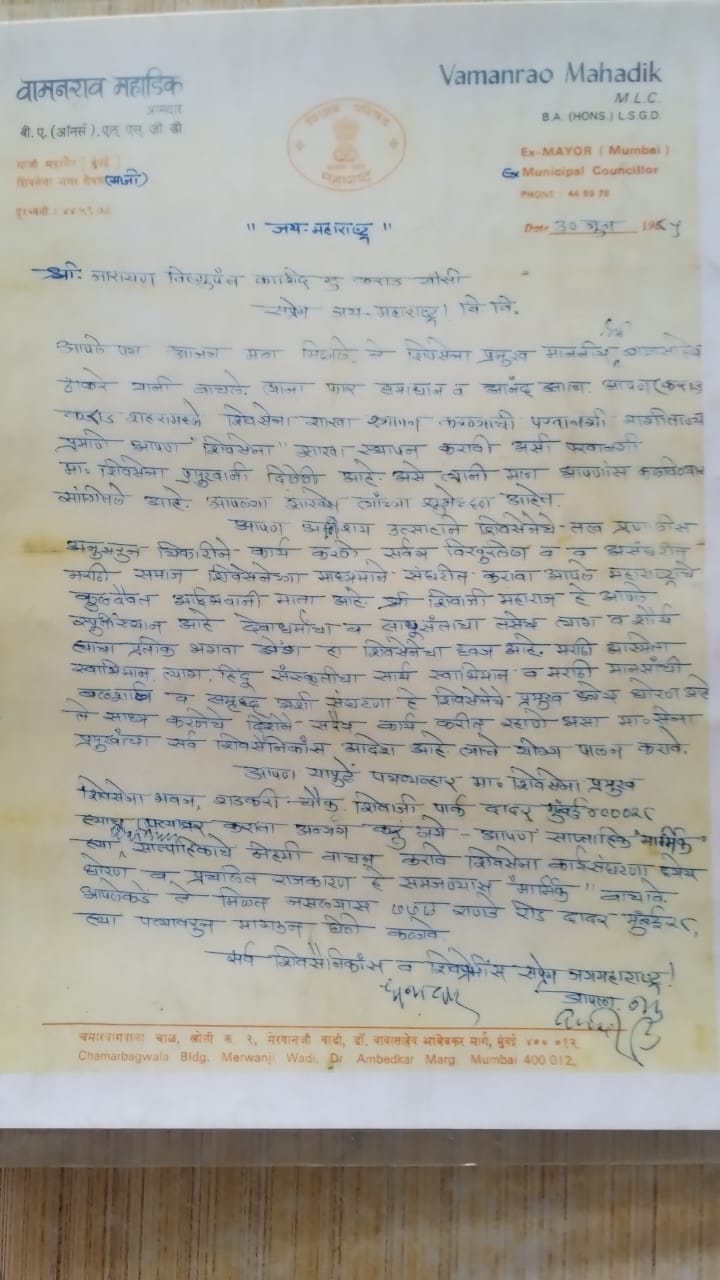 वामनराव महाडिक
आमदार
बी. ए. (ऑनर्स). एल. एस. जी. डी
माजी महापौर (मुंबई)
शिवसेना नगर सेवक (माजी)
दुरध्वनी :
Vamanrao Mahadik
M.L.C.
B.A. (HONS.) L.S.G.D.
Ex-MAYOR (Mumbai)
Ex Municipal Councillor
PHONE : 44 69 78
महाराष्ट्र
" जय-महाराष्ट्र "
Date 30 जून 19
श्री. नारायण
सप्रेम जय-महाराष्ट्र! वि वि.
आपले पत्र मला मिळाले. ते शिवसेना प्रमुख माननीय
ठाकरे यांनी वाचले. त्यांना फार समाधान व आनंद झाला. आपण (कराड
शिवसेना शाखा स्थापन करण्याची परवानगी
प्रमाणे आपण "शिवसेना" शाखा स्थापन करावी अशी परवानगी
मा. शिवसेना प्रमुखांनी दिलेली आहे. असे त्यांनी मला आपणांस
सांगितले आहे. आपल्या शाखेस त्यांच्या शुभेच्छा आहेत.
आपण अतिशय उत्साहाने शिवसेनेचे तत्व
अनुसरुन चिकाटीने कार्य करावे सर्वत्र विखुरलेला व व असंघटीत
मराठी समाज शिवसेनेच्या माध्यमाने संघटीत करावा आपले महाराष्ट्राचे
कुळदैवत आईभवानी माता आहे. श्री शिवाजी महाराज हे आपले
स्फुर्तीस्थान आहे देवाधर्माचा व साधुसंतांचा तसेच त्याग व शौर्य
त्याचा प्रतीक भगवा झेंडा हा शिवसेनेचा ध्वज आहे. मराठी अस्मिता
स्वाभिमान, त्याग, हिंदु संस्कृतीचा सार्थ स्वाभिमान व मराठी माणसांची
बळशाली व समृध्द अशी संघटणा हे शिवसेनेचे प्रमुख ध्येय धोरण आहे
ते साध्य करणेचे दिशेने सदैव कार्य करीत रहाणे असा मा. सेना
प्रमुखांचा सर्व शिवसैनिकांस आदेश आहे त्याचे योग्य पालन करावे.
आपण यापुढे पत्रव्यव्हार मा. शिवसेना प्रमुख
शिवसेना भवन, गडकरी चौक. शिवाजी पार्क दादर मुंबई ४०००२८
ह्याच पत्यावर करावा अन्यत्र करु नये - आपण साप्ताहिक "मार्मिक"
ह्या साप्ताहिकाचे नेहमी वाचन करावे शिवसेना कार्य संघटणा ध्येय
धोरण व प्रचलित राजकारण हे समजण्यास "मार्मिक" वाचावे.
आपलेकडे ते मिळत नसल्यास ७७५ रानडे रोड दादर मुंबई २८,
ह्या पत्यावरुन मागवून घेणे कळावे.
सर्व शिवसैनिकांस व शिवप्रेमींस सप्रेम जयमहाराष्ट्र!
आपला
चमारबागवाला चाळ, खोली क्र. २, मेरवानजी वाडी, डॉ. बाबासाहेब आंबेडकर मार्ग, मुंबई ४०० ०१२
Chamarbagwala Bldg. Merwanji Wadi, Dr Ambedkar Marg. Mumbai 400 012.